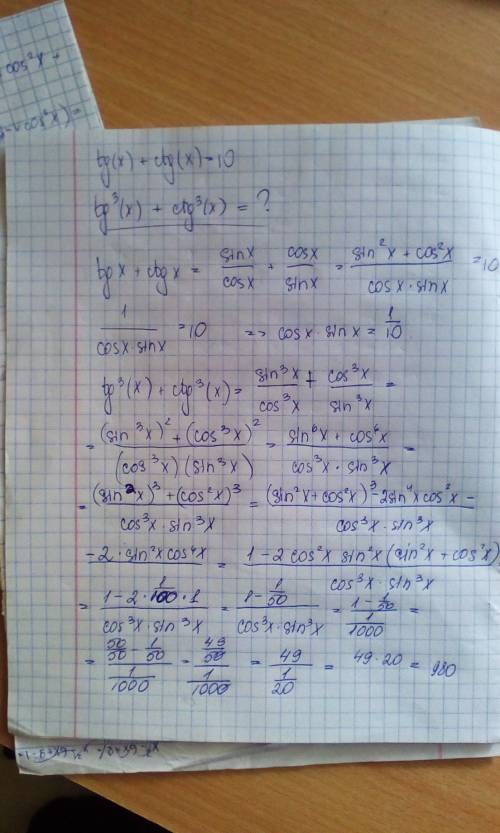 cos²x +
tg(x) + ctg(x) = 10
tg³(x) + ctg³(x) = ?
tgx + ctgx = sinx/cosx + cosx/sinx = (sin²x + cos²x)/(cosx·sinx) = 10
1/(cosx·sinx) = 10 => cosx·sinx = 1/10
tg³(x) + ctg³(x) = sin³x/cos³x + cos³x/sin³x =
= ((sin³x)² + (cos³x)²)/((cos³x)(sin³x)) = (sin⁶x + cos⁶x)/(cos³x·sin³x) =
= ((sin²x)³ + (cos²x)³)/(cos³x·sin³x) = ((sin²x + cos²x)³ - 2sin⁴xcos²x -)/(cos³x·sin³x)
- 2·sin²xcos⁴x = (1 - 2cos²x sin²x(sin²x + cos²x))/(cos³x·sin³x)
= (1 - 2·1/100·1)/(cos³x·sin³x) = (1 - 1/50)/(cos³x·sin³x) = (1 - 1/50)/(1/1000) =
= (50/50 - 1/50)/(1/1000) = (49/50)/(1/1000) = 49/(1/20) = 49·20 = 980